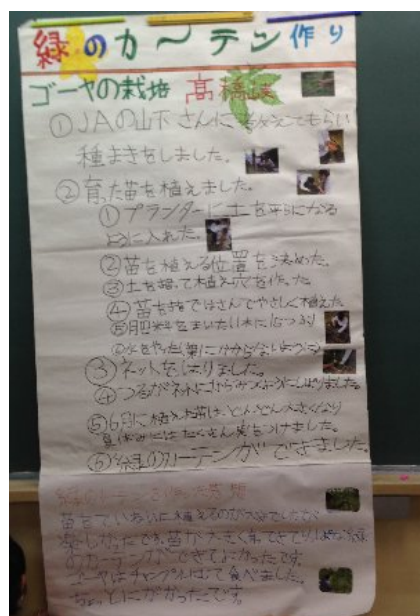 緑のカーテン作り
ゴーヤの栽培 髙橋
①JAの山下さんに教えてもらい
種まきをしました。
②育った苗を植えました。
①プランターに土を平らになる
ように入れた。
②苗を植える位置を決めた。
③土を掘って植え穴を作った
④苗を指ではさんでやさしく植えた
⑤肥料をまいた
⑥水をやった(葉にかからないように)
③ネットをはりました。
④つるがネットにからみつくようにしました。
⑤6月に植えた苗は、どんどん大きくなり
夏休みにはたくさん実をつけました。
⑥緑のカーテンができました。
緑のカーテン
苗をていねいに植えるのが大変でしたが、
楽しかったです。苗が大きく育って
のカーテンができてよかったです。
ゴーヤはチャンプルにして食べました。
ちょっとにがかったです。